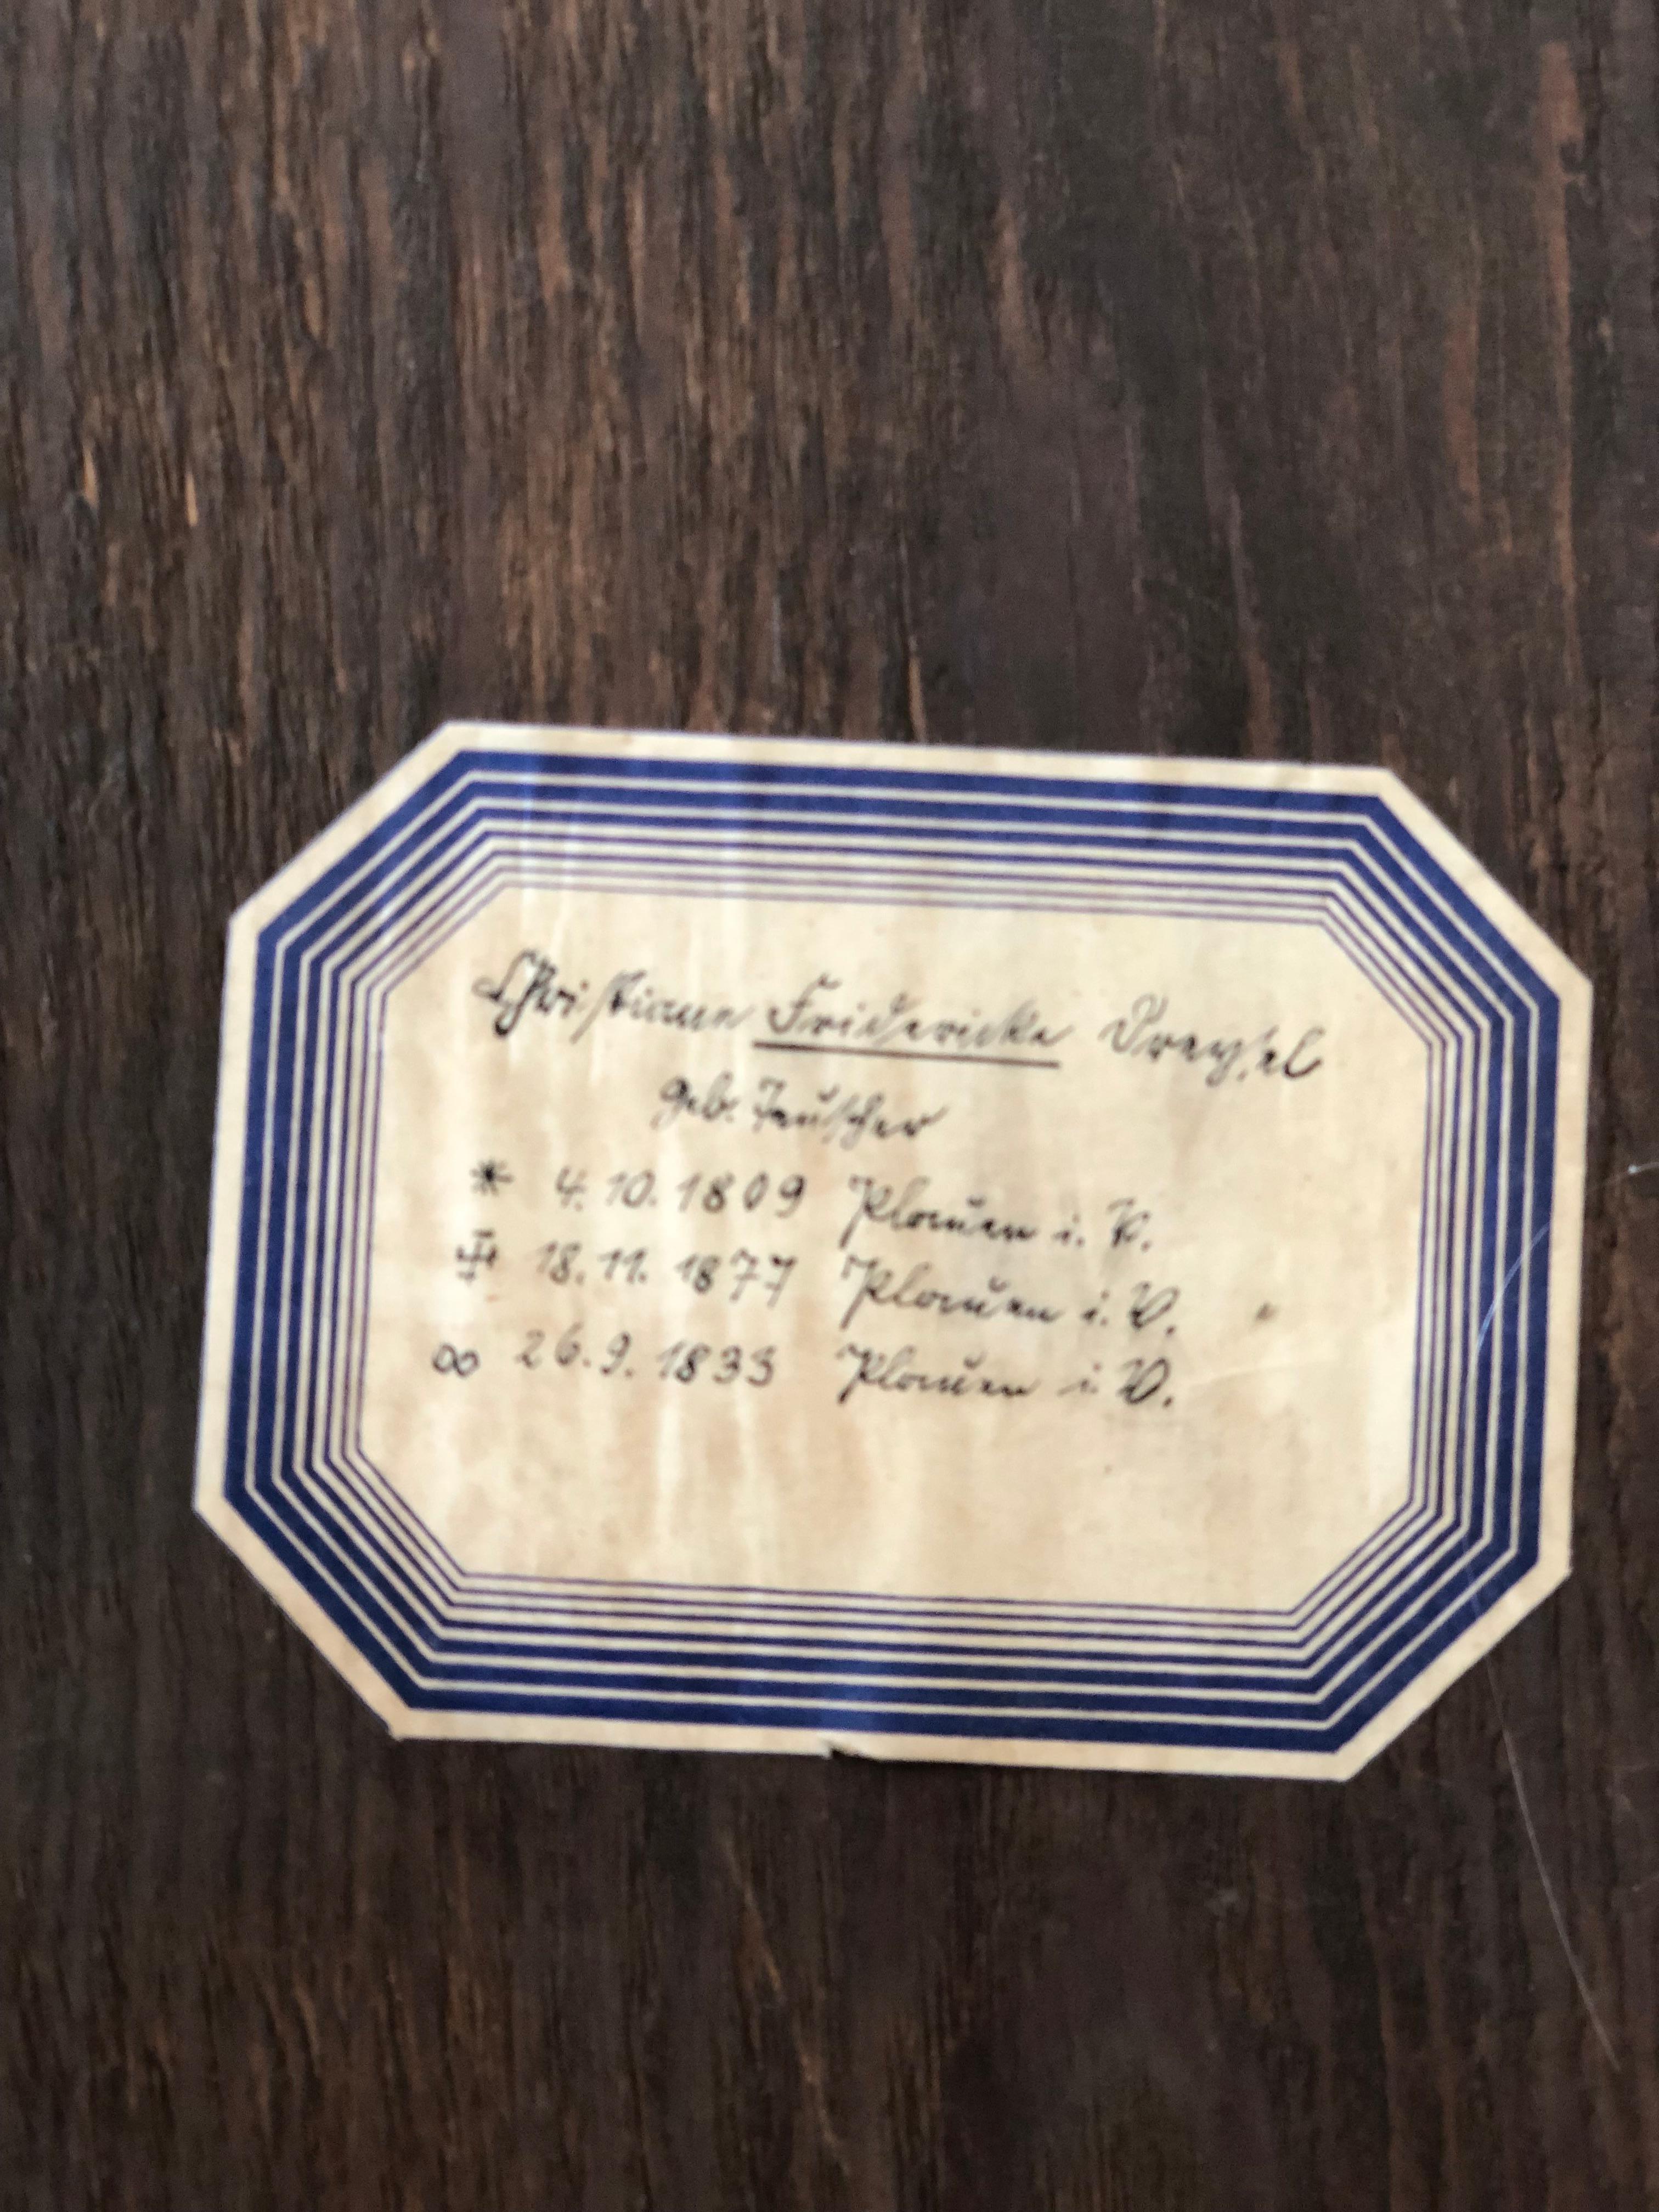 Christiane Fridericke Dreysel
geb. Teuscher
* 4. 10. 1809 Plauen i. V.
18. 11. 1877 Plauen i. V.
∞ 26. 9. 1833 Plauen i. V.